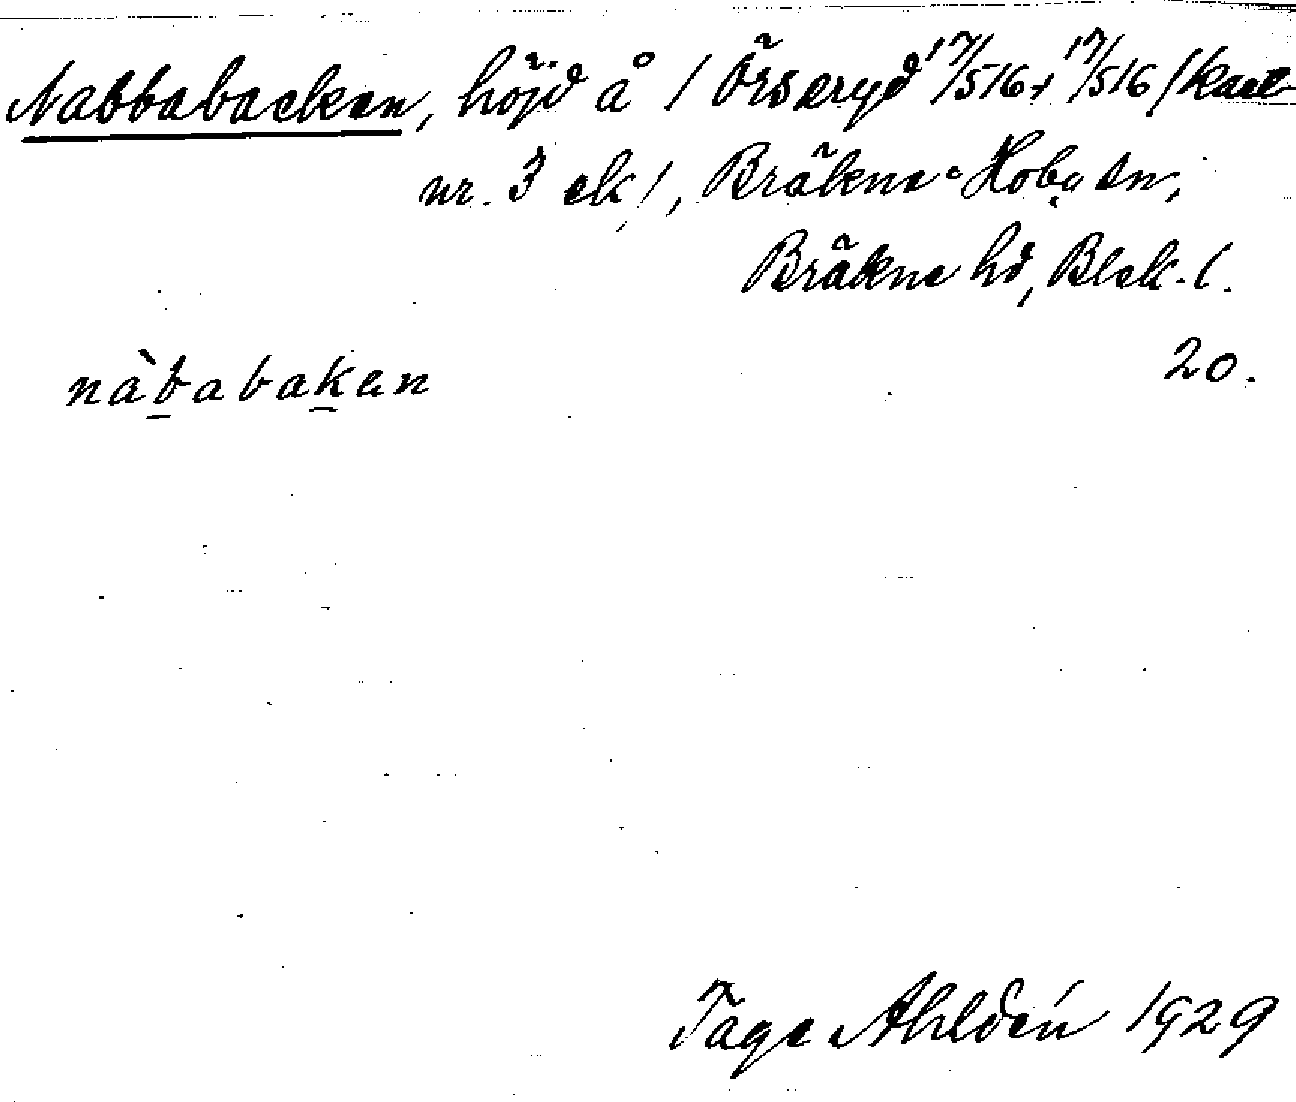 Nabbabacken, höjd å / Örseryd 17/516 + 17/516 / Kart
nr. 3 ek /, Bräkne-Hoby sn,
Bräkne hd, Blek. l.
20.
nàbabakan
Tage Ahldén 1929